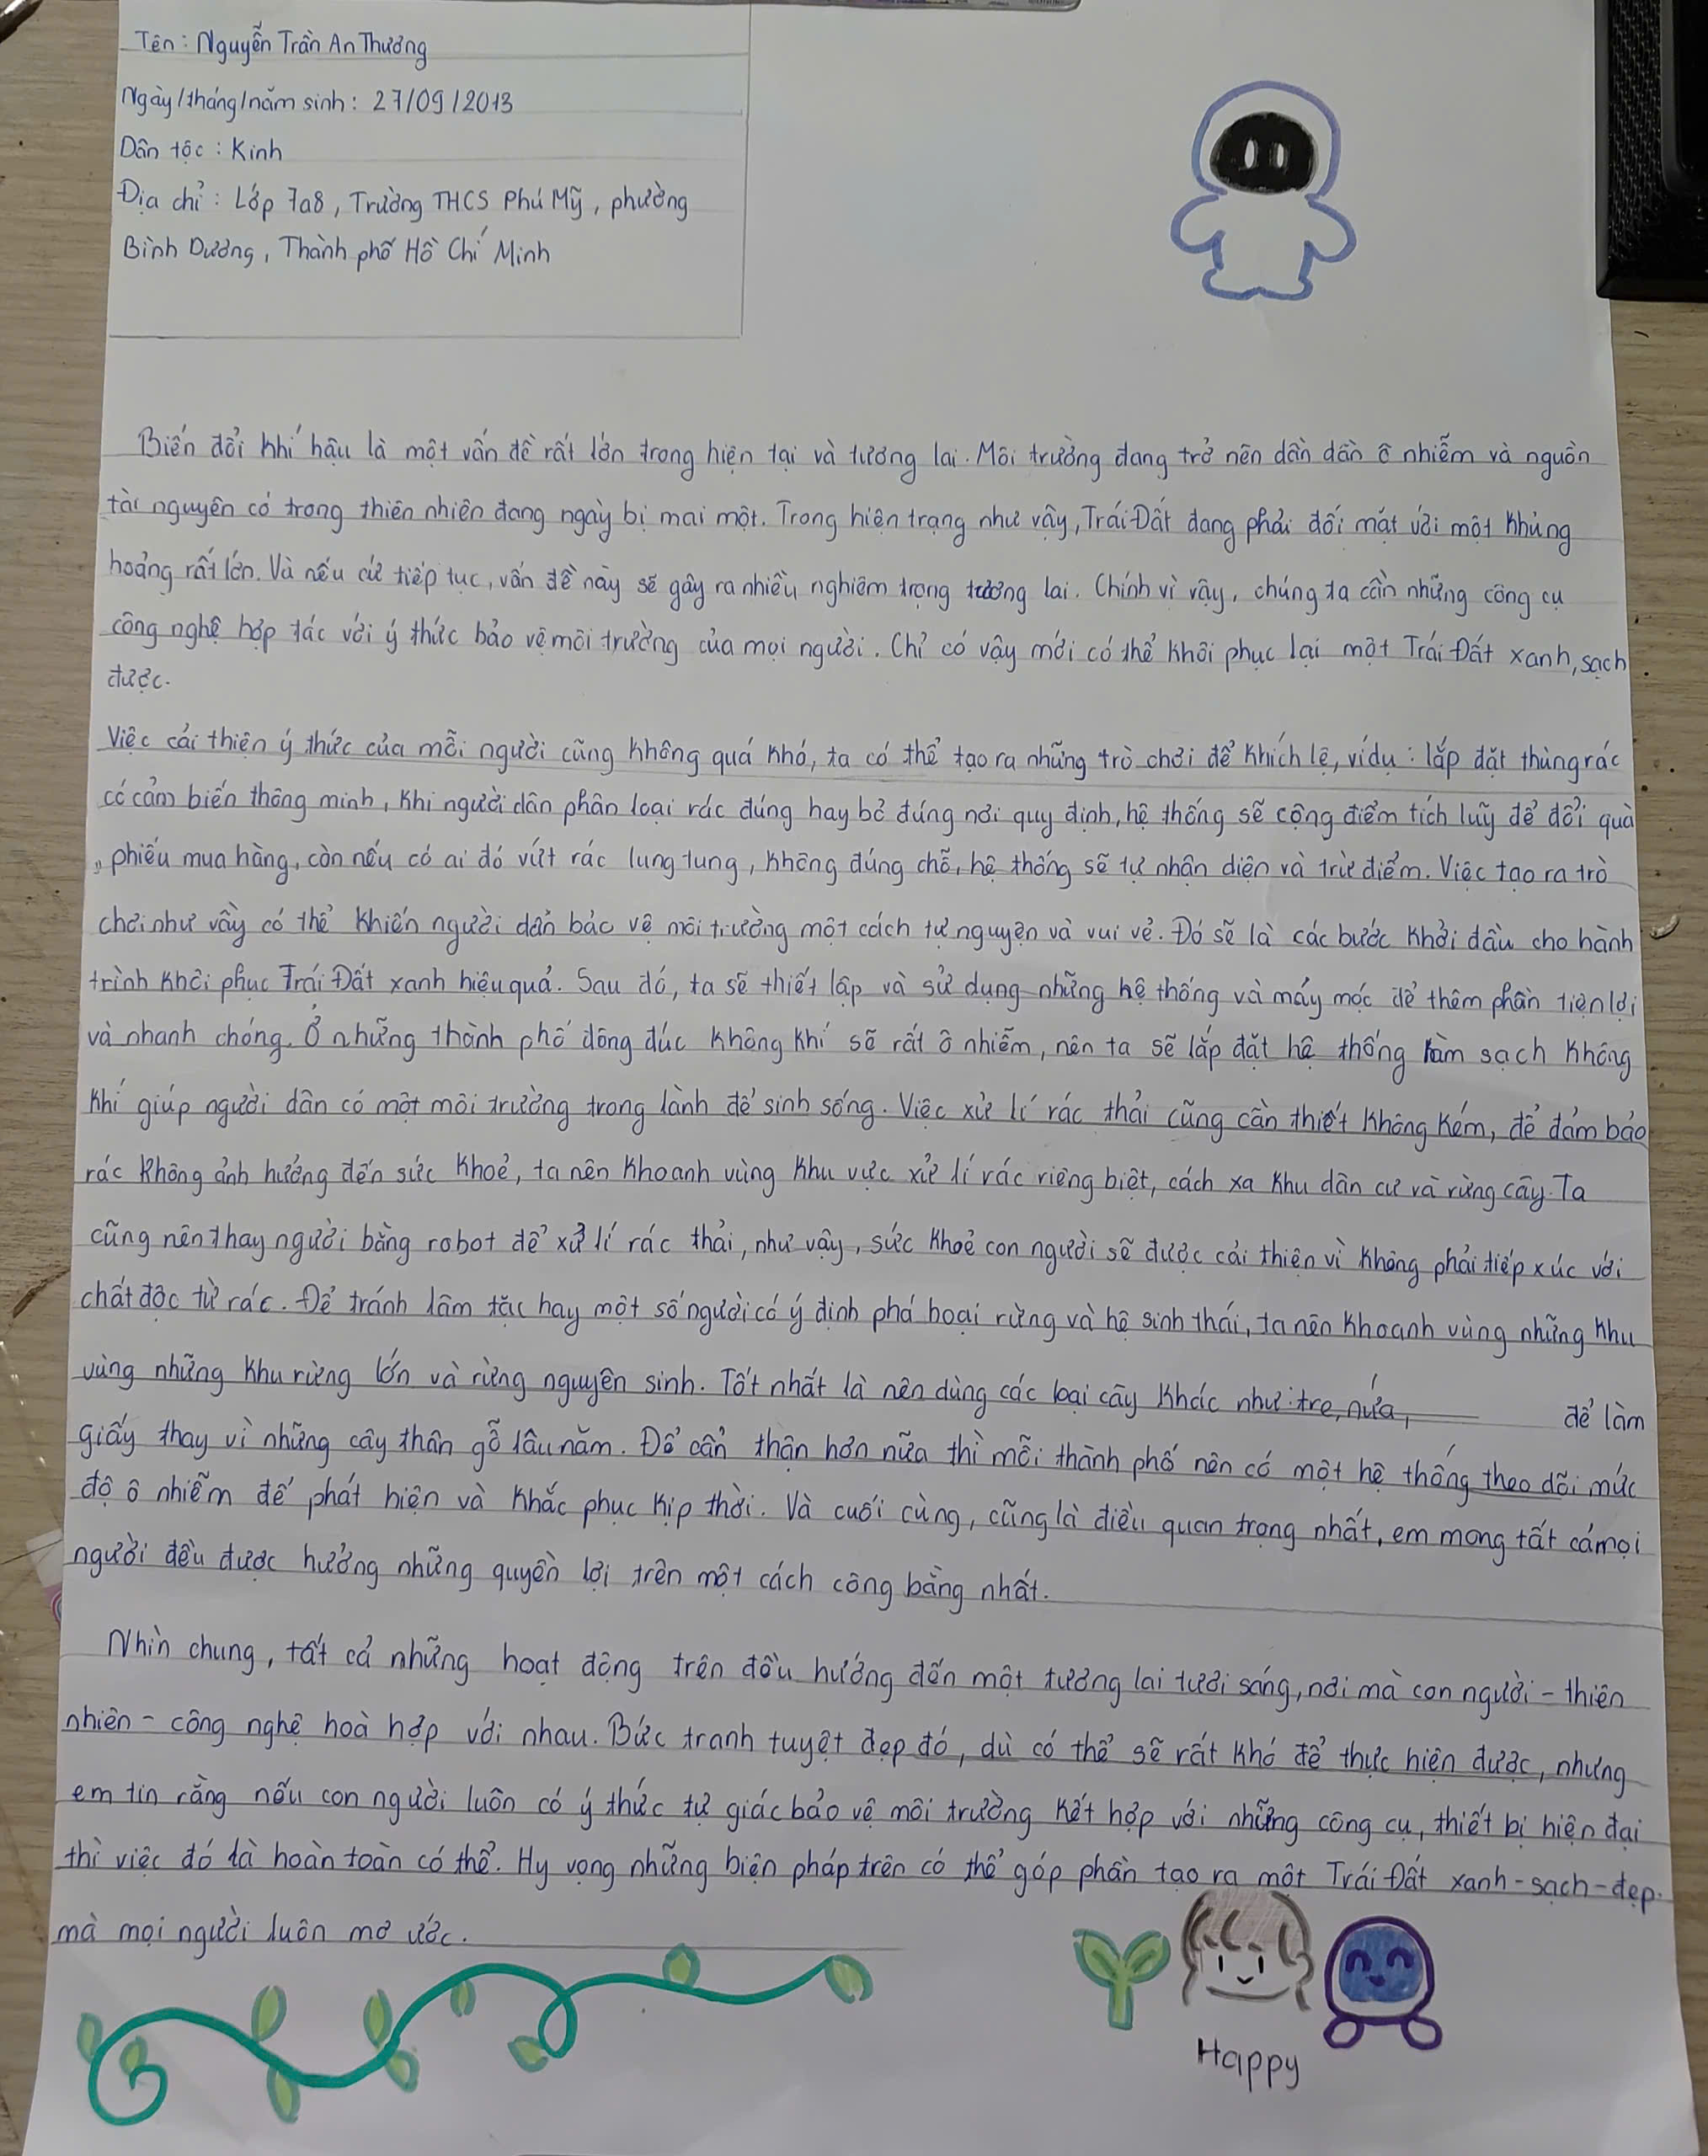 Tên: Nguyễn Trần An Thương
Ngày/tháng/năm sinh: 27/09/2013
Dân tộc: Kinh
Địa chỉ: Lớp 7a8, Trường THCS Phú Mỹ, phường
Bình Dương, Thành phố Hồ Chí Minh
Biến đổi khí hậu là một vấn đề rất lớn trong hiện tại và tương lai. Môi trường đang trở nên dần dần ô nhiễm và nguồn
tài nguyên có trong thiên nhiên đang ngày bị mai một. Trong hiện trạng như vậy, Trái Đất đang phải đối mặt với một khủng
hoảng rất lớn. Và nếu cứ tiếp tục, vấn đề này sẽ gây ra nhiều nghiêm trọng tương lai. Chính vì vậy, chúng ta cần những công cụ
công nghệ hợp tác với ý thức bảo vệ môi trường của mọi người. Chỉ có vậy mới có thể khôi phục lại một Trái Đất xanh, sạch
được.
Việc cải thiện ý thức của mỗi người cũng không quá khó, ta có thể tạo ra những trò chơi để khích lệ, ví dụ: lắp đặt thùng rác
có cảm biến thông minh, khi người dân phân loại rác đúng hay bỏ đúng nơi quy định, hệ thống sẽ cộng điểm tích luỹ để đổi quà
, phiếu mua hàng, còn nếu có ai đó vứt rác lung tung, không đúng chỗ, hệ thống sẽ tự nhận diện và trừ điểm. Việc tạo ra trò
chơi như vầy có thể khiến người dân bảo vệ môi trường một cách tự nguyện và vui vẻ. Đó sẽ là các bước khởi đầu cho hành
trình khôi phục Trái Đất xanh hiệu quả. Sau đó, ta sẽ thiết lập và sử dụng những hệ thống và máy móc để thêm phần tiện lợi
và nhanh chóng. Ở những thành phố đông đúc không khí sẽ rất ô nhiễm, nên ta sẽ lắp đặt hệ thống làm sạch không
khí giúp người dân có một môi trường trong lành để sinh sống. Việc xử lí rác thải cũng cần thiết không kém, để đảm bảo
rác không ảnh hưởng đến sức khoẻ, ta nên khoanh vùng khu vực xử lí rác riêng biệt, cách xa khu dân cư và rừng cây. Ta
cũng nên thay người bằng robot để xử lí rác thải, như vậy, sức khoẻ con người sẽ được cải thiện vì không phải tiếp xúc với
chất độc từ rác. Để tránh lâm tặc hay một số người có ý định phá hoại rừng và hệ sinh thái, ta nên khoanh vùng những khu
vùng những khu rừng lớn và rừng nguyên sinh. Tốt nhất là nên dùng các loại cây khác như: tre, nứa, để làm
giấy thay vì những cây thân gỗ lâu năm. Để cẩn thận hơn nữa thì mỗi thành phố nên có một hệ thống theo dõi mức
độ ô nhiễm để phát hiện và khắc phục kịp thời. Và cuối cùng, cũng là điều quan trọng nhất, em mong tất cả mọi
người đều được hưởng những quyền lợi trên một cách công bằng nhất.
Nhìn chung, tất cả những hoạt động trên đều hướng đến một tương lai tươi sáng, nơi mà con người - thiên
nhiên - công nghệ hoà hợp với nhau. Bức tranh tuyệt đẹp đó, dù có thể sẽ rất khó để thực hiện được, nhưng
em tin rằng nếu con người luôn có ý thức tự giác bảo vệ môi trường kết hợp với những công cụ, thiết bị hiện đại
thì việc đó là hoàn toàn có thể. Hy vọng những biện pháp trên có thể góp phần tạo ra một Trái Đất xanh - sạch - đẹp.
mà mọi người luôn mơ ước.
Happy